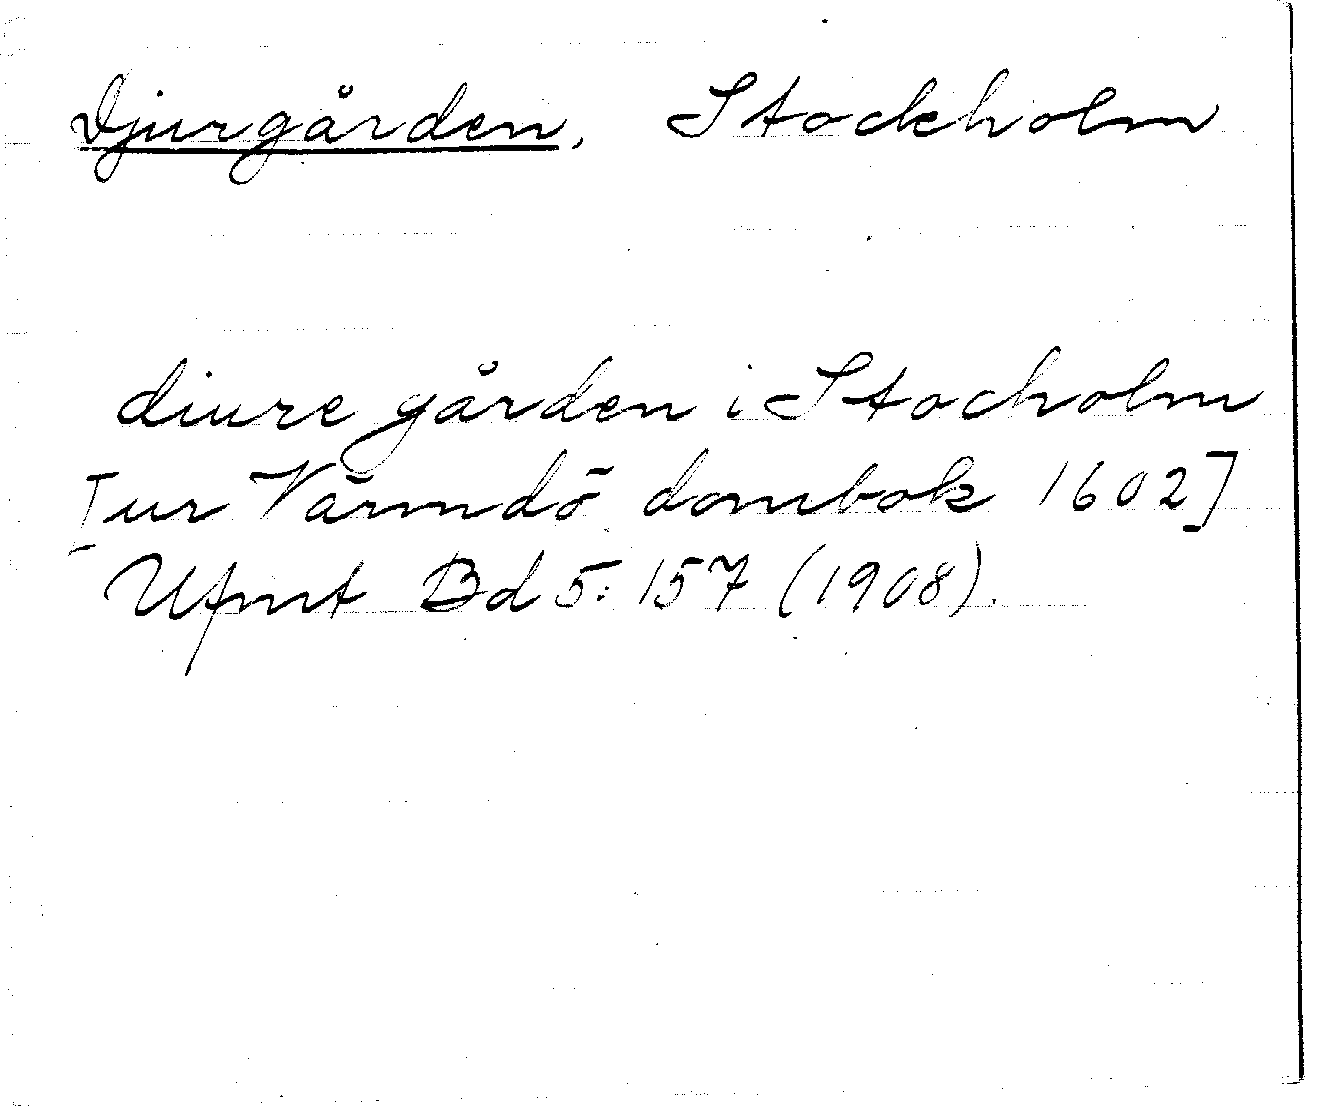 Djurgården, Stockholm
diure gården i Stocholm
[ur Värmdö dombok 1602]
Ufmt Bd 5: 157 (1908).